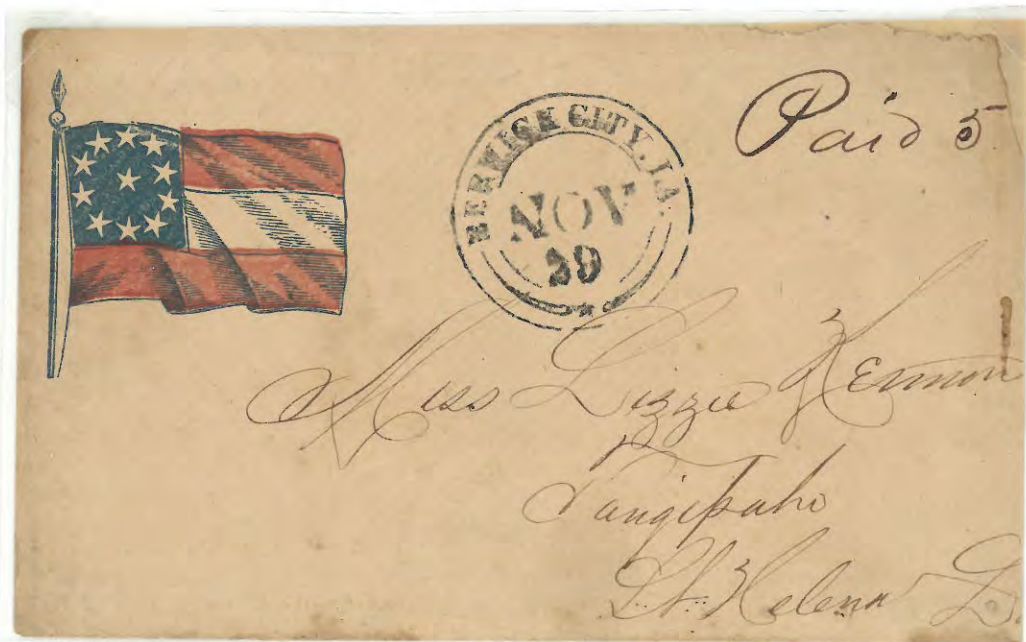 Paid 5
BERWICK CITY, LA.
NOV
29
Miss Lizzie Kennon
Tangipaho
St. Helena